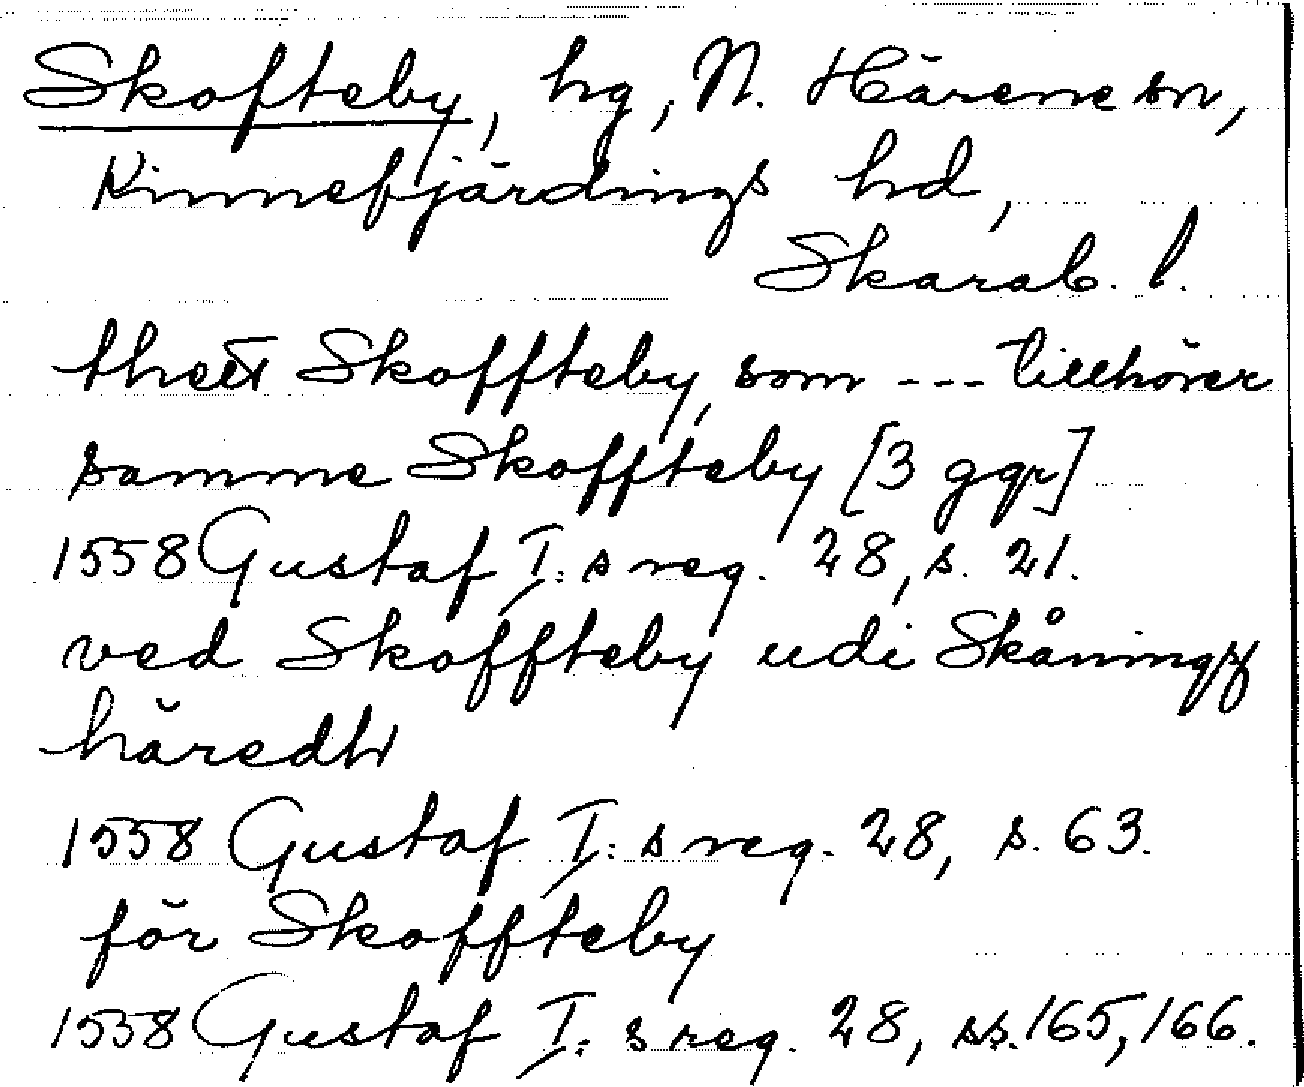 Skofteby, hg, N. Härene sn,
Kinnefjärdings hd,
Skarab. l.
thett Skoffteby, som --- tillhörer
samme Skoffteby [3 ggr]
1558 Gustaf I:s reg. 28, s. 21.
ved Skoffteby udi Skåningz
häredh
1558 Gustaf I:s reg. 28, s. 63.
för Skoffteby
1558 Gustaf I:s reg. 28, ss. 165, 166.